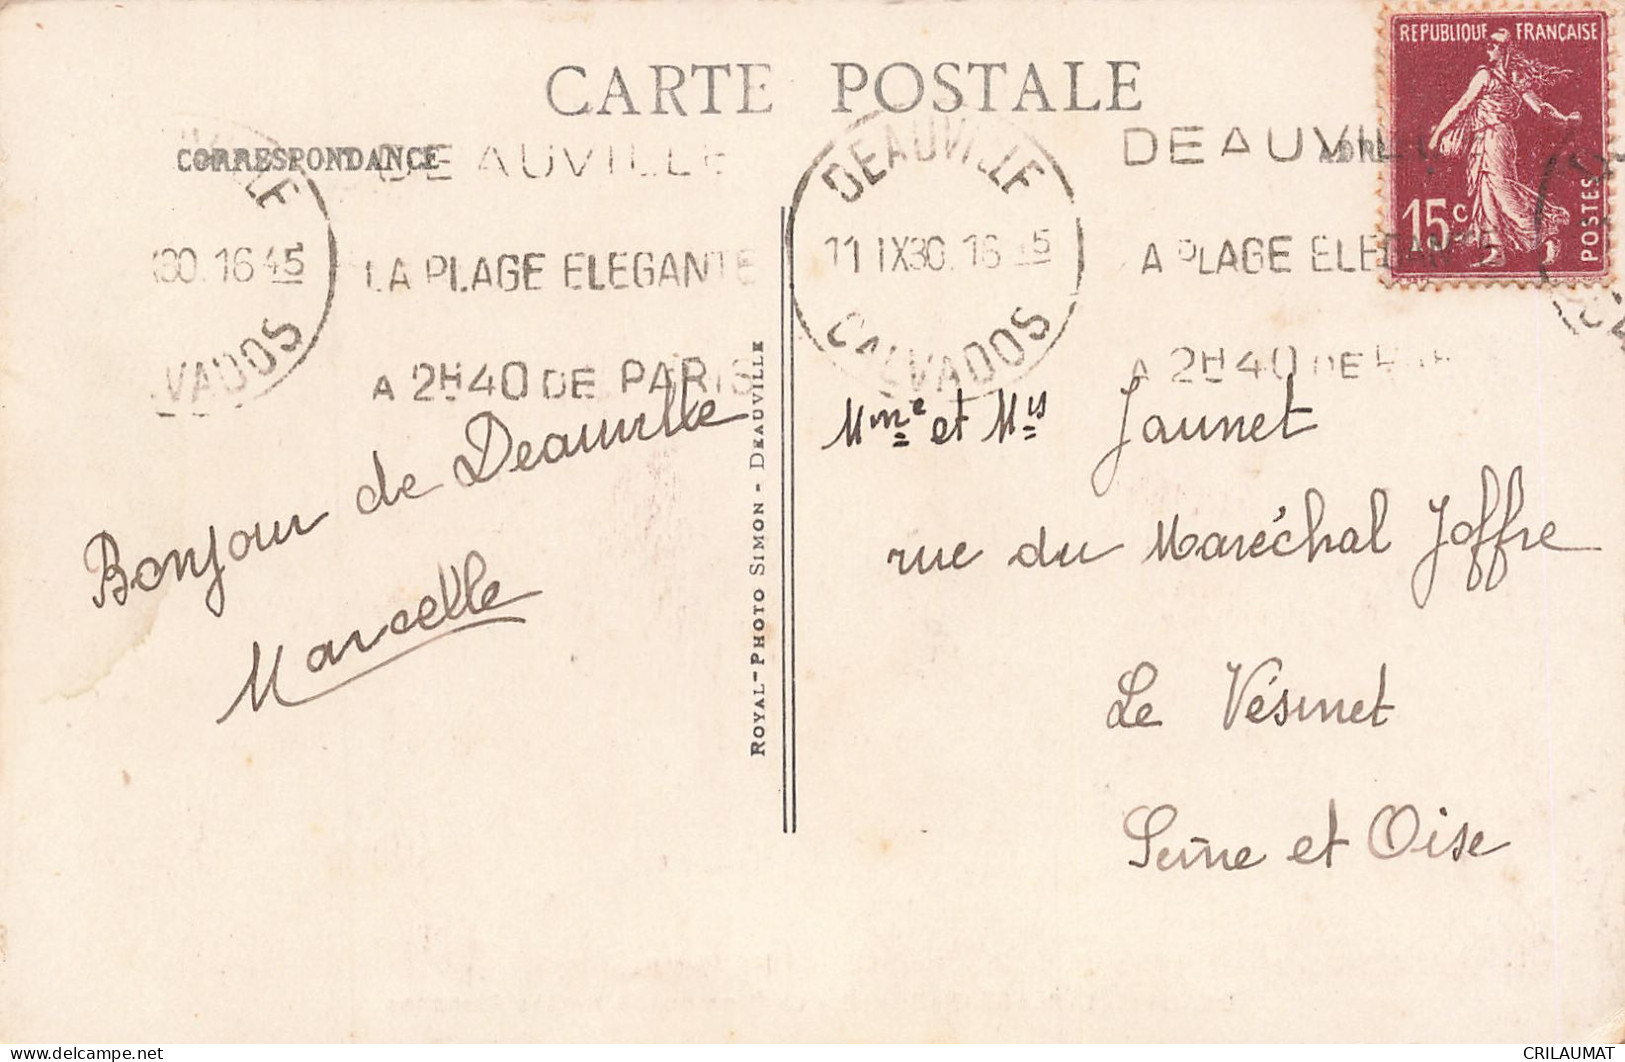 CARTE POSTALE
CORRESPONDANCE
DEAUVILLE
30.16 45
VADOS
DEAUVILLE
LA PLAGE ELEGANTE
A 2H40 DE PARIS
DEAUVILLE
11 IX30.16 45
CALVADOS
DEAUVILLE
A PLAGE ELEGANTE
A 2H40 DE PAR
REPUBLIQUE FRANÇAISE
15c
POSTES
Bonjour de Deauville
Marcelle
ROYAL-PHOTO SIMON - DEAUVILLE
Mme et Mis Jaunet
rue du Maréchal Joffre
Le Vésinet
Seine et Oise
CRILAUMAT